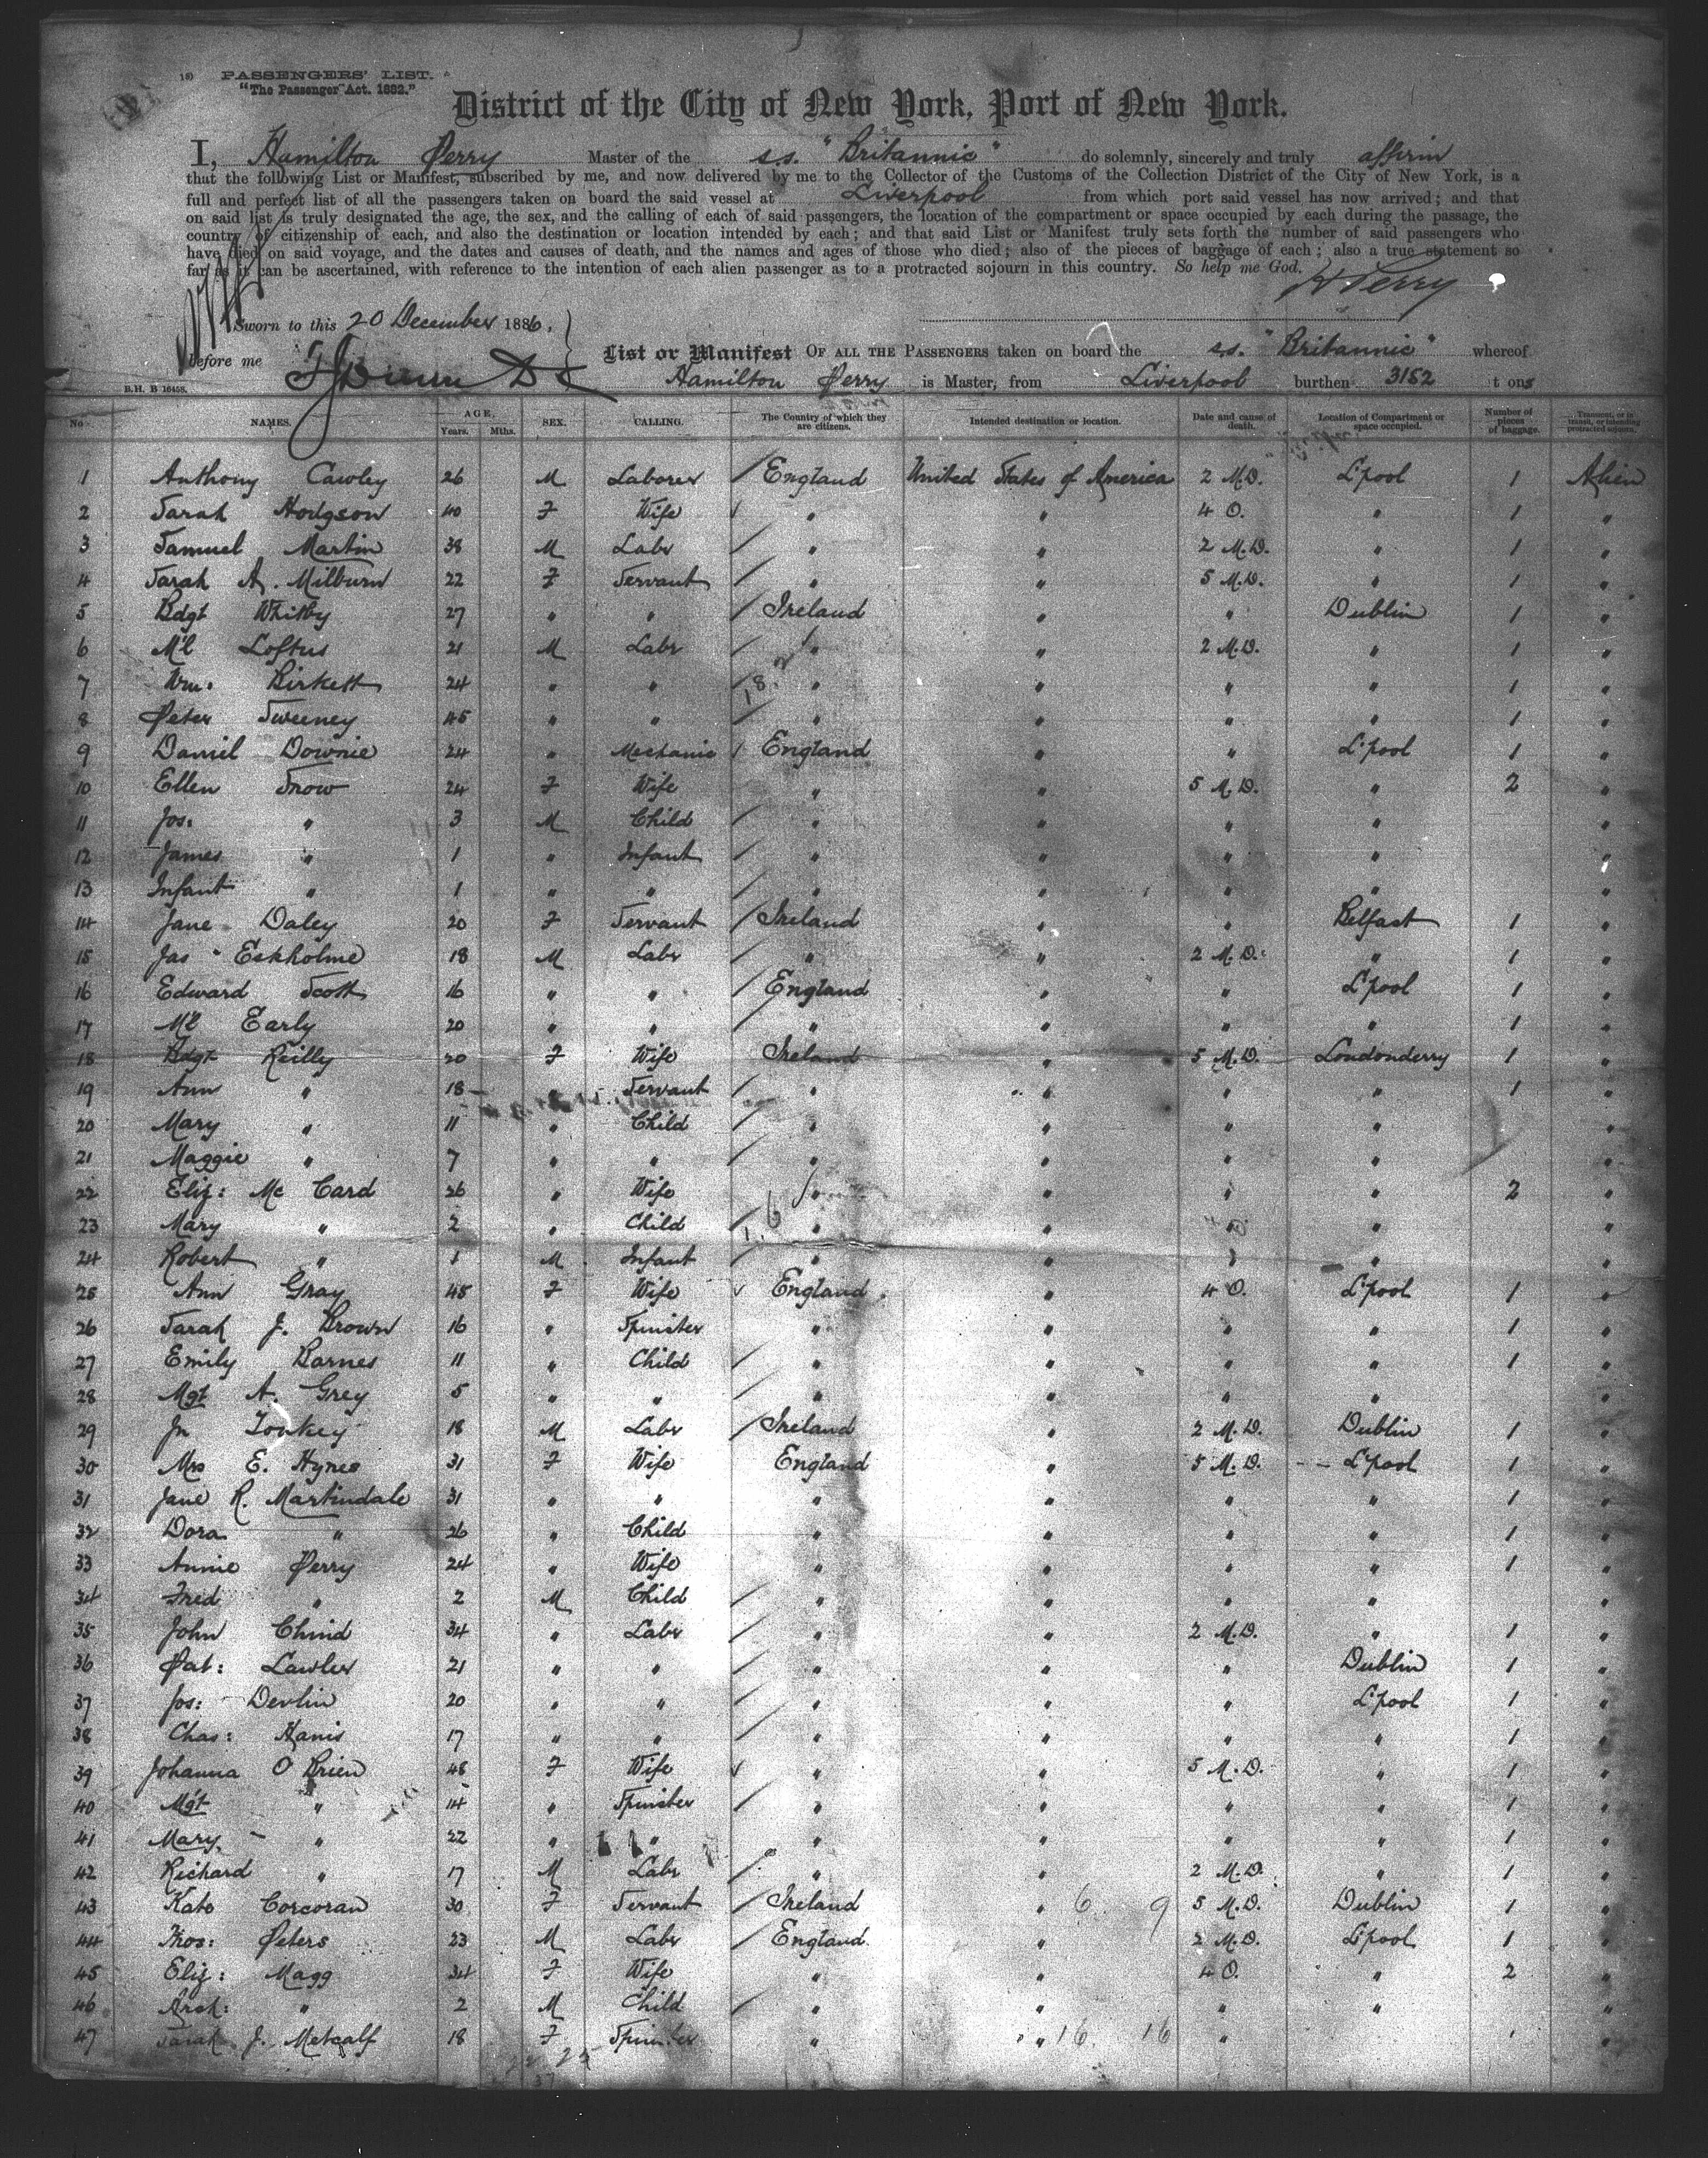 PASSENGERS' LIST.
"The Passenger Act. 1882."
District of the City of New York, Port of New York.
I, Hamilton Perry Master of the s.s. "Britannic" do solemnly, sincerely and truly affirm
that the following List or Manifest, subscribed by me, and now delivered by me to the Collector of the Customs of the Collection District of the City of New York, is a
full and perfect list of all the passengers taken on board the said vessel at Liverpool from which port said vessel has now arrived; and that
on said list is truly designated the age, the sex, and the calling of each of said passengers, the location of the compartment or space occupied by each during the passage, the
country of citizenship of each, and also the destination or location intended by each; and that said List or Manifest truly sets forth the number of said passengers who
have died on said voyage, and the dates and causes of death, and the names and ages of those who died; also of the pieces of baggage of each; also a true statement so
far as it can be ascertained, with reference to the intention of each alien passenger as to a protracted sojourn in this country. So help me God.
H Perry
Sworn to this 20 December 1886,
before me
List or Manifest OF ALL THE PASSENGERS taken on board the s.s. "Britannic" whereof
B.H. B 16458. Hamilton Perry is Master, from Liverpool burthen 3152 tons
No NAMES. AGE, Years. Mths. SEX. CALLING. The Country of which they are citizens. Intended destination or location. Date and cause of death. Location of Compartment or space occupied. Number of pieces of baggage. Transient, or in transit, or intending protracted sojourn.
1 Anthony Cawley 26 M Laborer England United States of America 2 M.D. L'pool 1 Alien
2 Sarah Hodgson 40 F Wife " " 4 O. " 1 "
3 Samuel Martin 38 M Labr " " 2 M.D. " 1 "
4 Sarah A. Milburn 22 F Servant " " 5 M.D. " 1 "
5 Bdgt Whitby 27 " " Ireland " " Dublin 1 "
6 Ml Loftus 21 M Labr " " 2 M.D. " 1 "
7 Wm. Birkett 24 " " " " " " 1 "
8 Peter Sweeney 45 " " " " " " 1 "
9 Daniel Downie 24 " Mechanic England " " L'pool 1 "
10 Ellen Snow 24 F Wife " " 5 M.D. " 2 "
11 Jos: " 3 M Child " " " " "
12 James " 1 " Infant " " " " "
13 Infant " 1 " " " " " " "
14 Jane Daley 20 F Servant Ireland " " Belfast 1 "
15 Jas Eskholme 18 M Labr " " 2 M.D. " 1 "
16 Edward Scott 16 " " England " " L'pool 1 "
17 Ml Early 20 " " " " " " 1 "
18 Bdgt Reilly 20 F Wife Ireland " 5 M.D. Londonderry 1 "
19 Ann " 18 " Servant " " " " 1 "
20 Mary " 11 " Child " " " " "
21 Maggie " 7 " " " " " " "
22 Eliz: Mc Card 26 " Wife " " " " 2 "
23 Mary " 2 " Child " " " " "
24 Robert " 1 M Infant " " " " "
25 Ann Gray 45 F Wife England " 4 O. L'pool 1 "
26 Sarah J. Brown 16 " Spinster " " " " 1 "
27 Emily Barnes 11 " Child " " " " 1 "
28 Mgt A. Grey 5 " " " " " " "
29 Jn Tonkey 18 M Labr Ireland " 2 M.D. Dublin 1 "
30 Mrs E. Hynes 31 F Wife England " 5 M.D. L'pool 1 "
31 Jane R. Martindale 31 " " " " " " 1 "
32 Dora " 26 " Child " " " " 1 "
33 Annie Perry 24 " Wife " " " " 1 "
34 Fred " 2 M Child " " " " "
35 John Chind 34 " Labr " " 2 M.D. " 1 "
36 Pat: Lawler 21 " " " " " Dublin 1 "
37 Jos: Devlin 20 " " " " " L'pool 1 "
38 Chas: Hanis 17 " " " " " " 1 "
39 Johanna O Brien 48 F Wife " " 5 M.D. " 1 "
40 Mgt " 14 " Spinster " " " " 1 "
41 Mary " 22 " " " " " " 1 "
42 Richard " 17 M Labr " " 2 M.D. " 1 "
43 Kate Corcoran 30 F Servant Ireland " 6 9 5 M.D. Dublin 1 "
44 Thos: Peters 23 M Labr England " 2 M.D. L'pool 1 "
45 Eliz: Magg 34 F Wife " " 4 O. " 2 "
46 Arch: " 2 M Child " " " " "
47 Sarah J. Metcalf 18 F Spinster " " 16. 16 " "